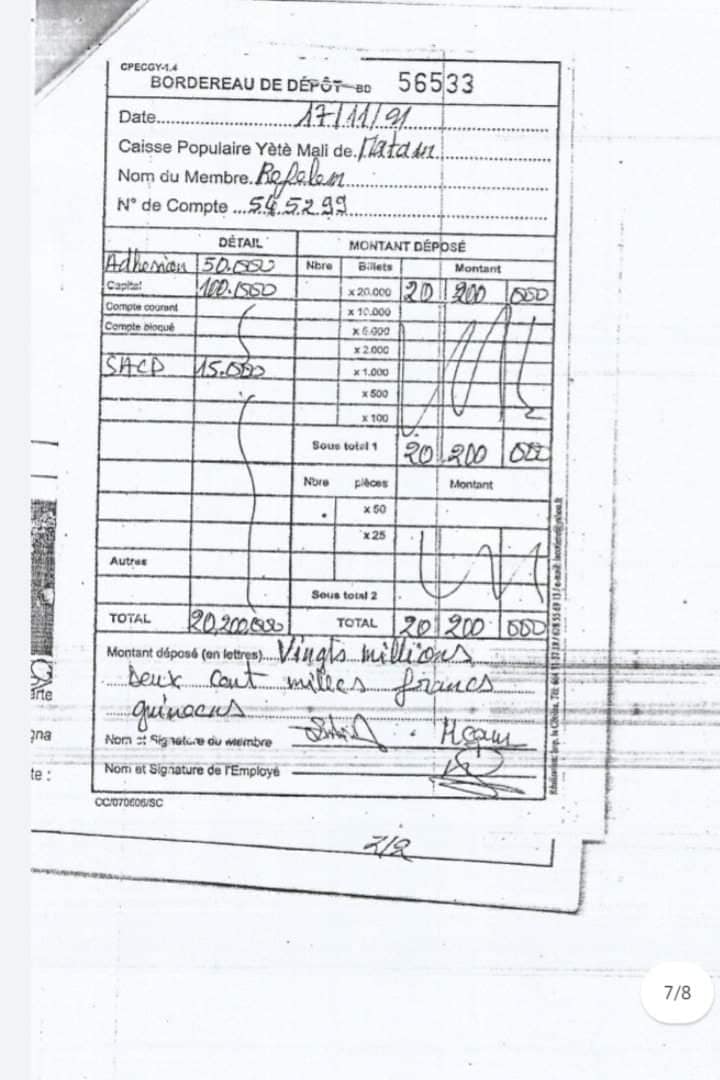 CPECGY-1.4
BORDEREAU DE DÉPÔT-BD 56533
Date 17/11/91
Caisse Populaire Yètè Mali de Matam
Nom du Membre
N° de Compte 545299
DÉTAIL MONTANT DÉPOSÉ
Adhesion 50.000 Nbre Billets Montant
Capital 100.000 x 20.000 20 200 000
Compte courant x 10.000
Compte bloqué x 5.000
x 2.000
SACP 15.000 x 1.000
x 500
x 100
Sous total 1 20 200 000
Nbre pièces Montant
x 50
x 25
Autres
Sous total 2
TOTAL 20,200,000 TOTAL 20 200 000
Montant déposé (en lettres) Vingts millions
Deux cent milles francs
guineens
Nom et Signature du membre
Nom et Signature de l'Employé
CC/070606/SC
2/2
arte
gna
te :
7/8